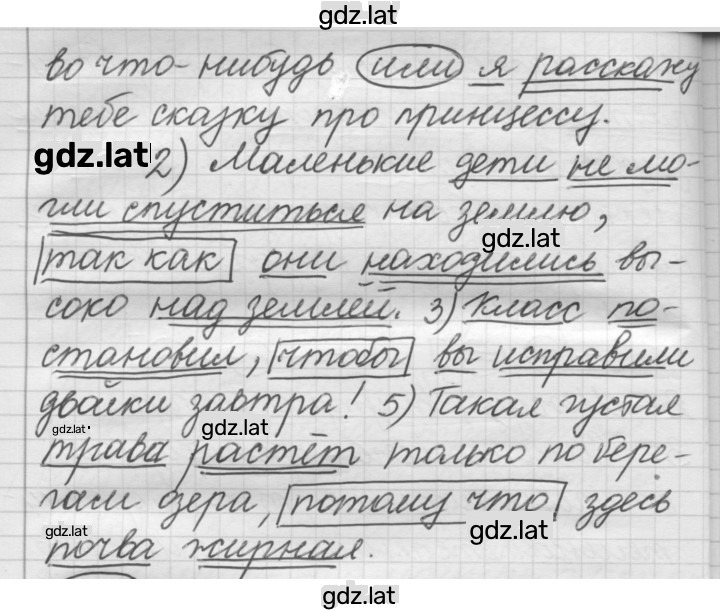 gdz.lat
во что-нибудь или я расскажу
тебе сказку про принцессу.
gdz.lat 2) Маленькие дети не мо-
гли спуститься на землю,
gdz.lat
так как они находились вы-
соко над землей. 3) Класс по-
становил, чтобы вы исправили
двойки завтра! 5) Такая густая
gdz.lat gdz.lat
трава растёт только по бере-
гам озера, потому что здесь
gdz.lat gdz.lat
почва жирная.
gdz.lat